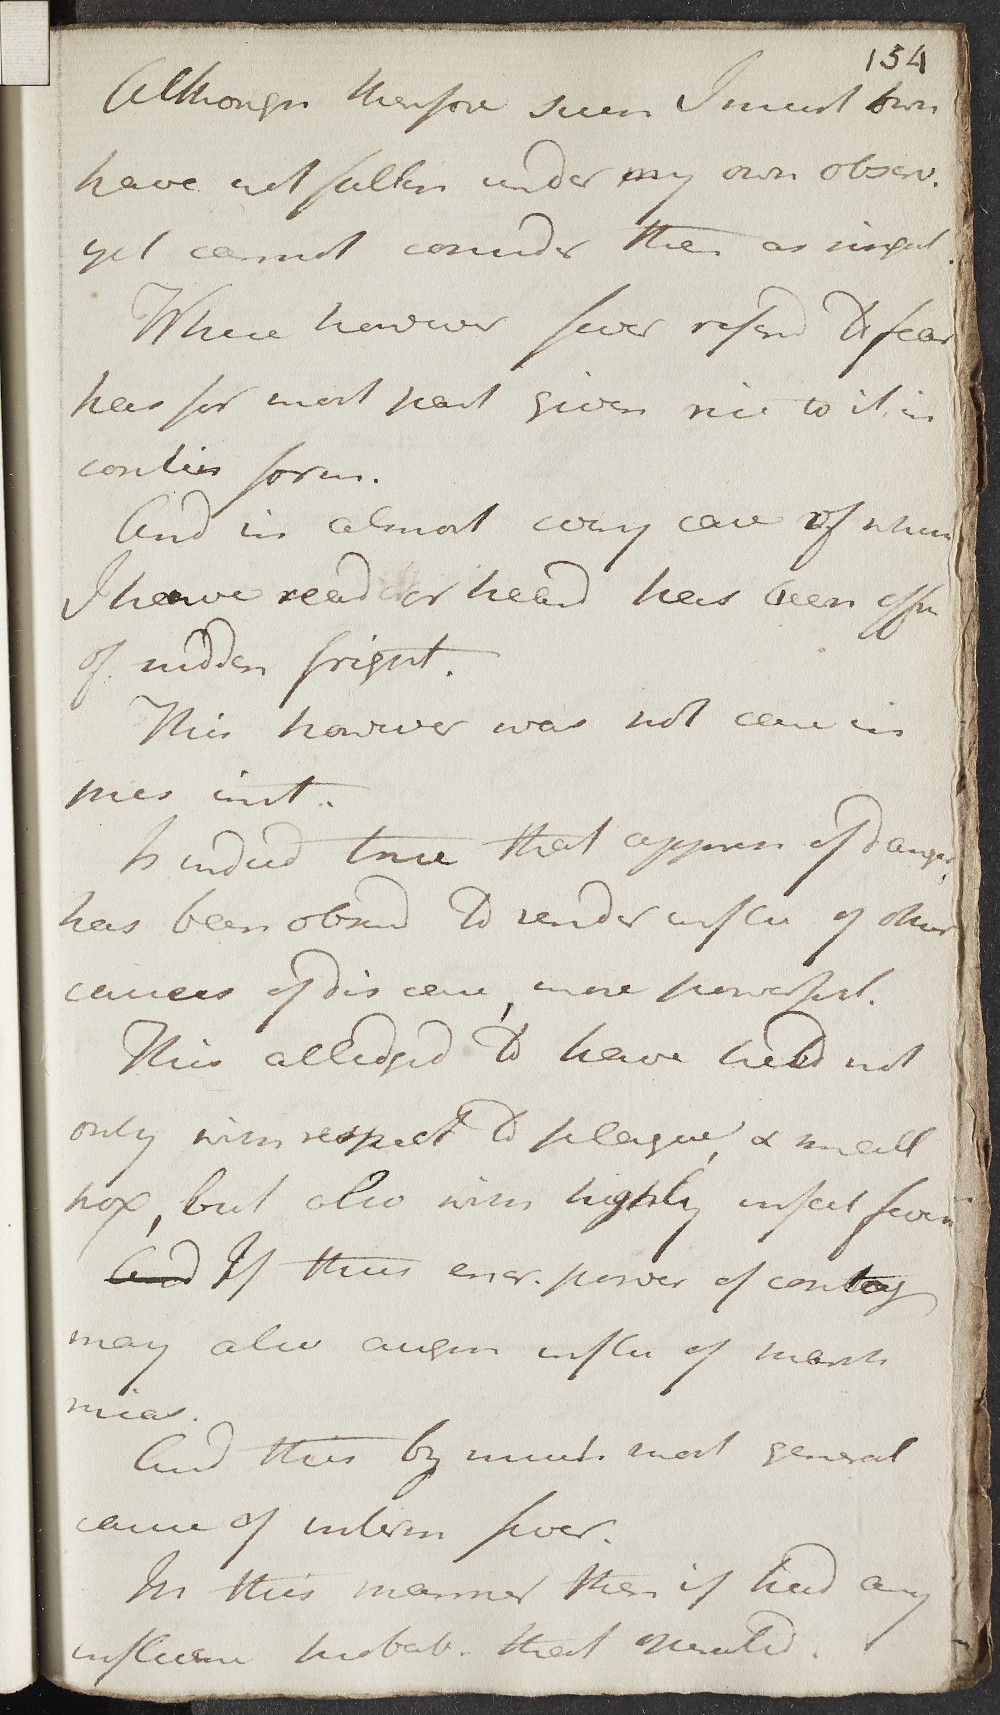 154
Although therefore such I must own
have not fallen under my own observ.
yet cannot consider them as singul.
Where however fever referd to fear
has for most part given rise to it in
contin form.
And in almost every case of which
I have read or heard has been effe
of sudden fright.
This however was not case in
pres inst..
Is indeed true that appren of danger,
has been obsend to render influ of other
causes of disease, more powerful.
This alledged to have held not
only with respect to plague, & small
pox, but also with highly infect fevers
And If thus encr. power of contag
may also augm influ of marsh
mias.
And this by much most general
cause of interm fever.
In this manner then if had any
influen probab. that operated.